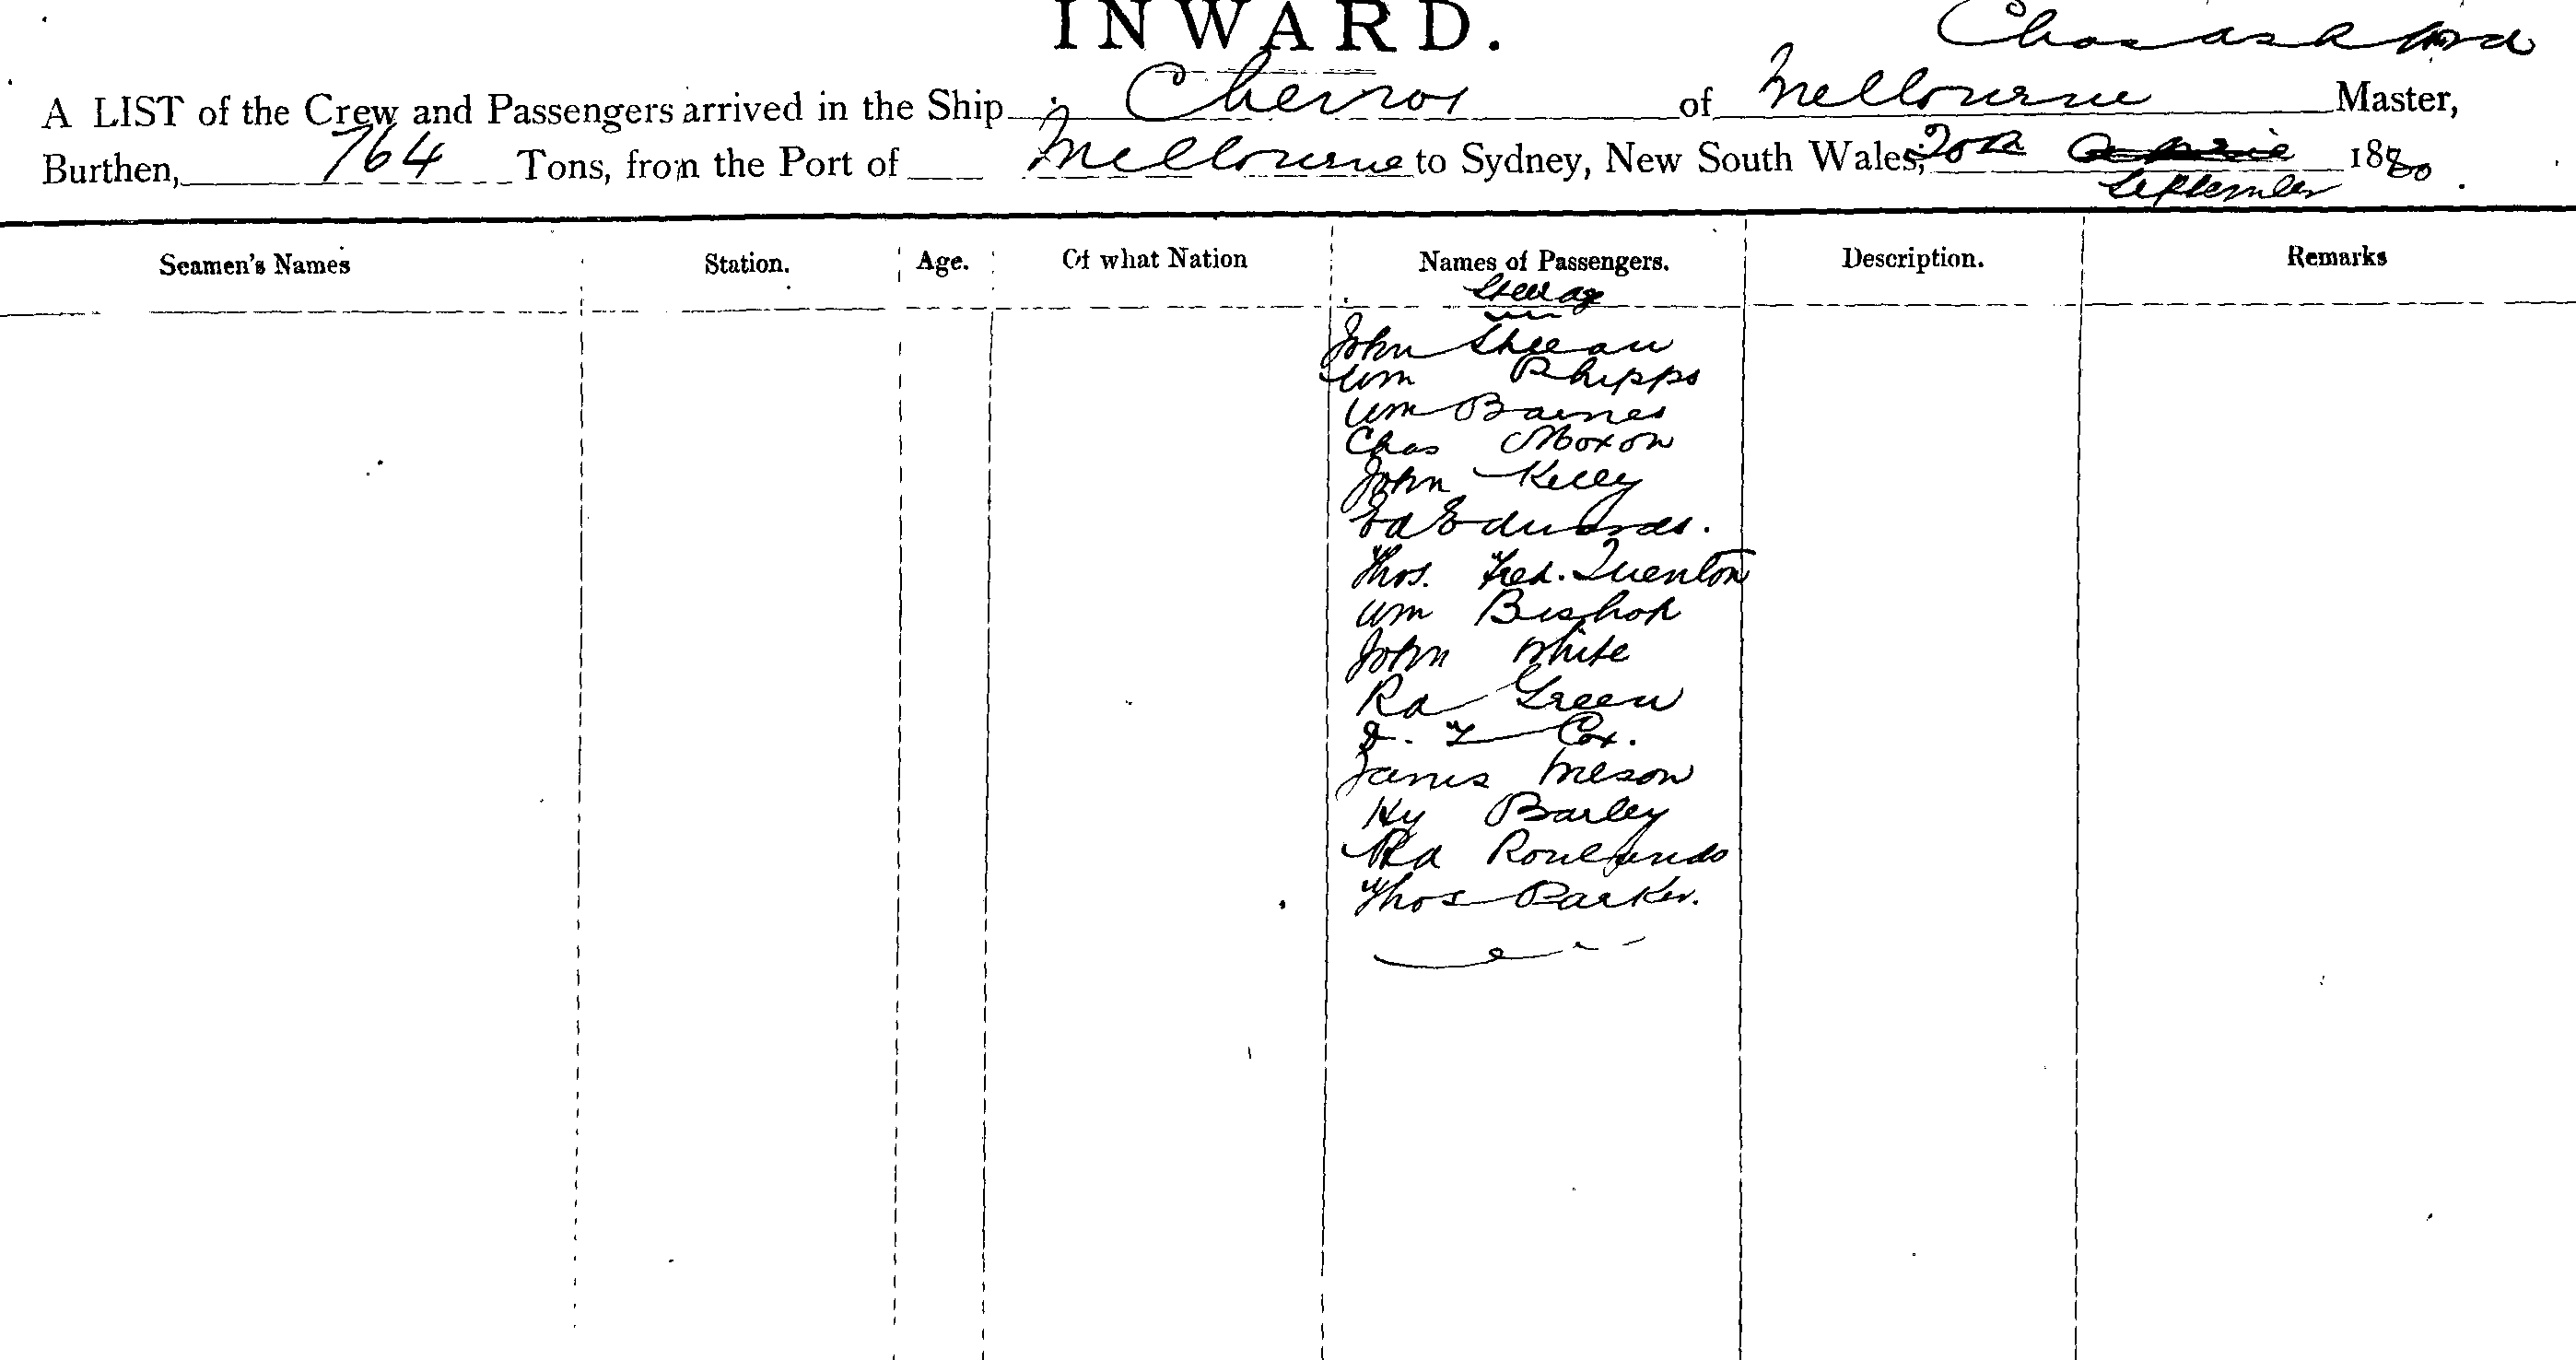 INWARD.
Chas
A LIST of the Crew and Passengers arrived in the Ship Cheviot of Melbourne Master,
Burthen, 764 Tons, from the Port of Melbourne to Sydney, New South Wales, 20th April 1880
September
Seamen's Names Station. Age. Of what Nation Names of Passengers. Description. Remarks
Steerage
John Sheean
Wm Phipps
Wm Barnes
Chas Moxon
John Kelly
Ed Edwards.
Thos. Fred. Quenton
Wm Bishop
John White
Rd Green
Cox.
James Meson
Hy Barley
Rd Rowlands
Thos Parker.